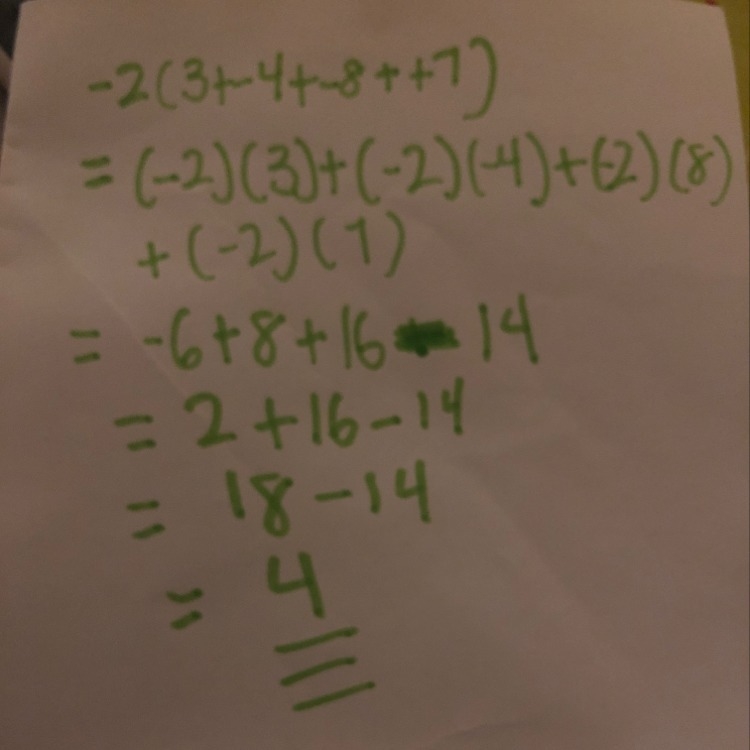 -2(3+-4+-8++7)
= (-2)(3)+(-2)(-4)+(-2)(8)
+(-2)(7)
= -6+8+16-14
= 2+16-14
= 18-14
= 4